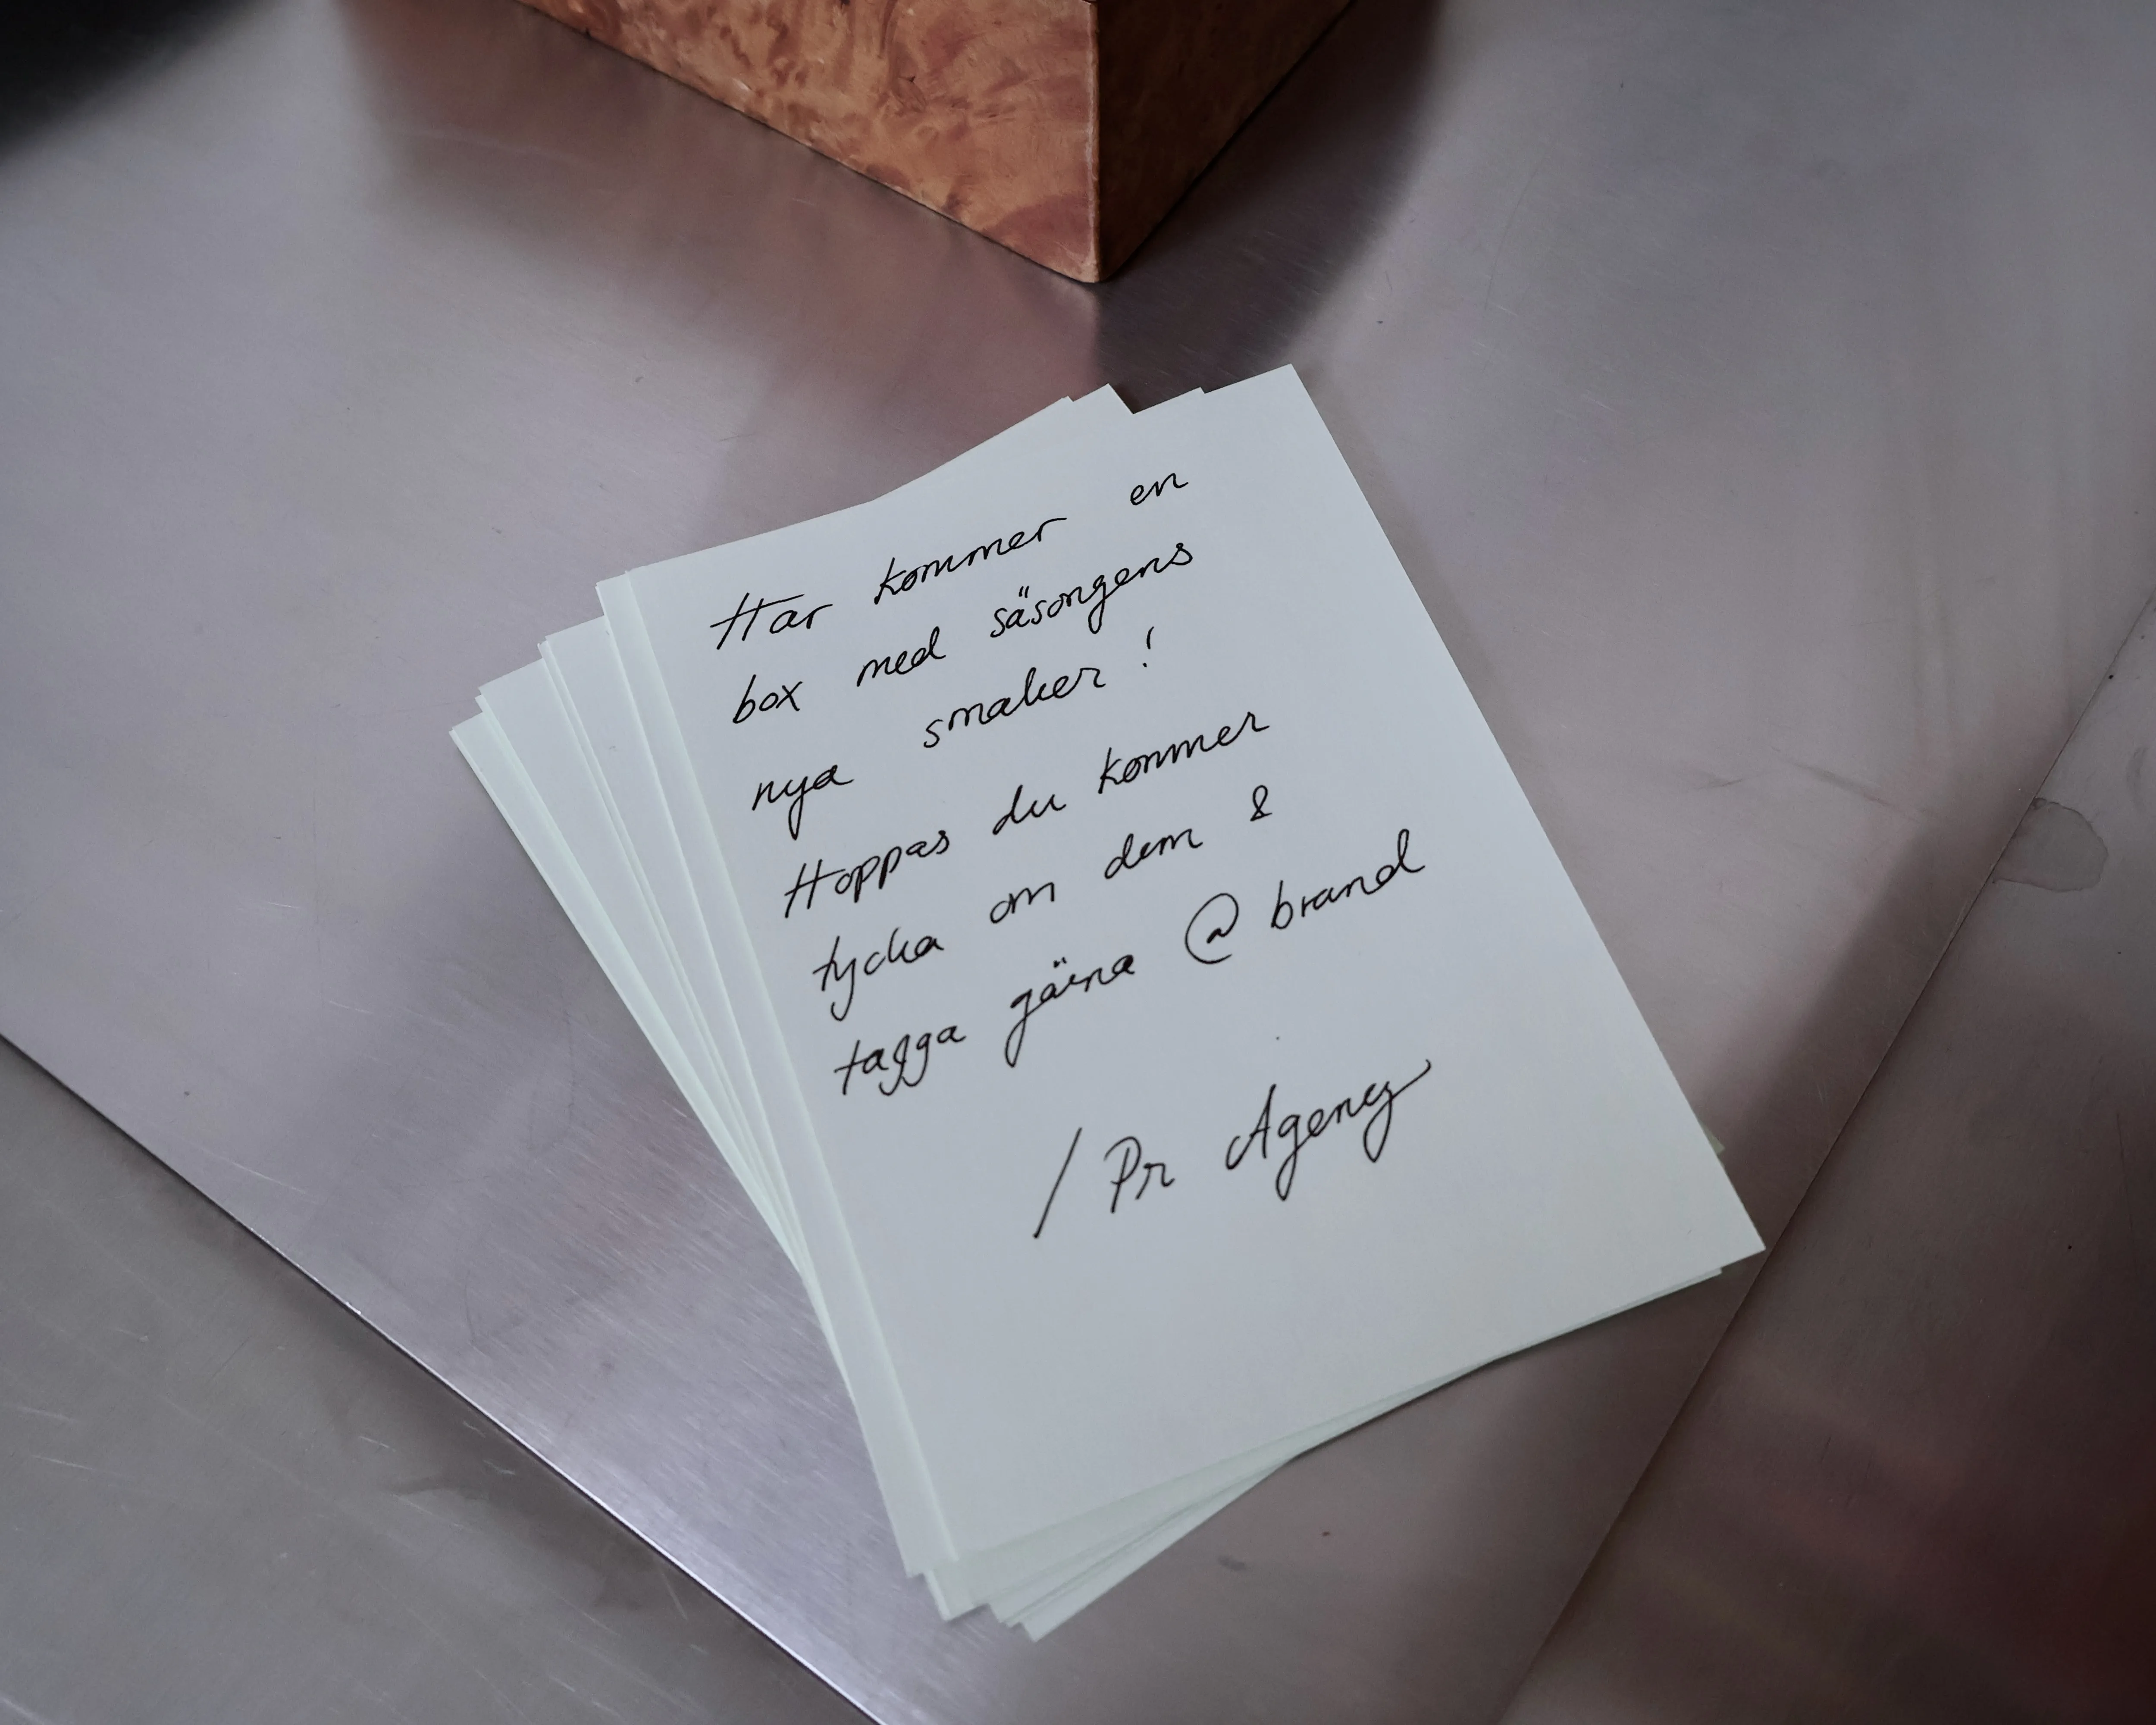 Här kommer en
box med säsongens
nya smaker!
Hoppas du kommer
tycka om dem &
tagga gärna @brand
/Pr Agency